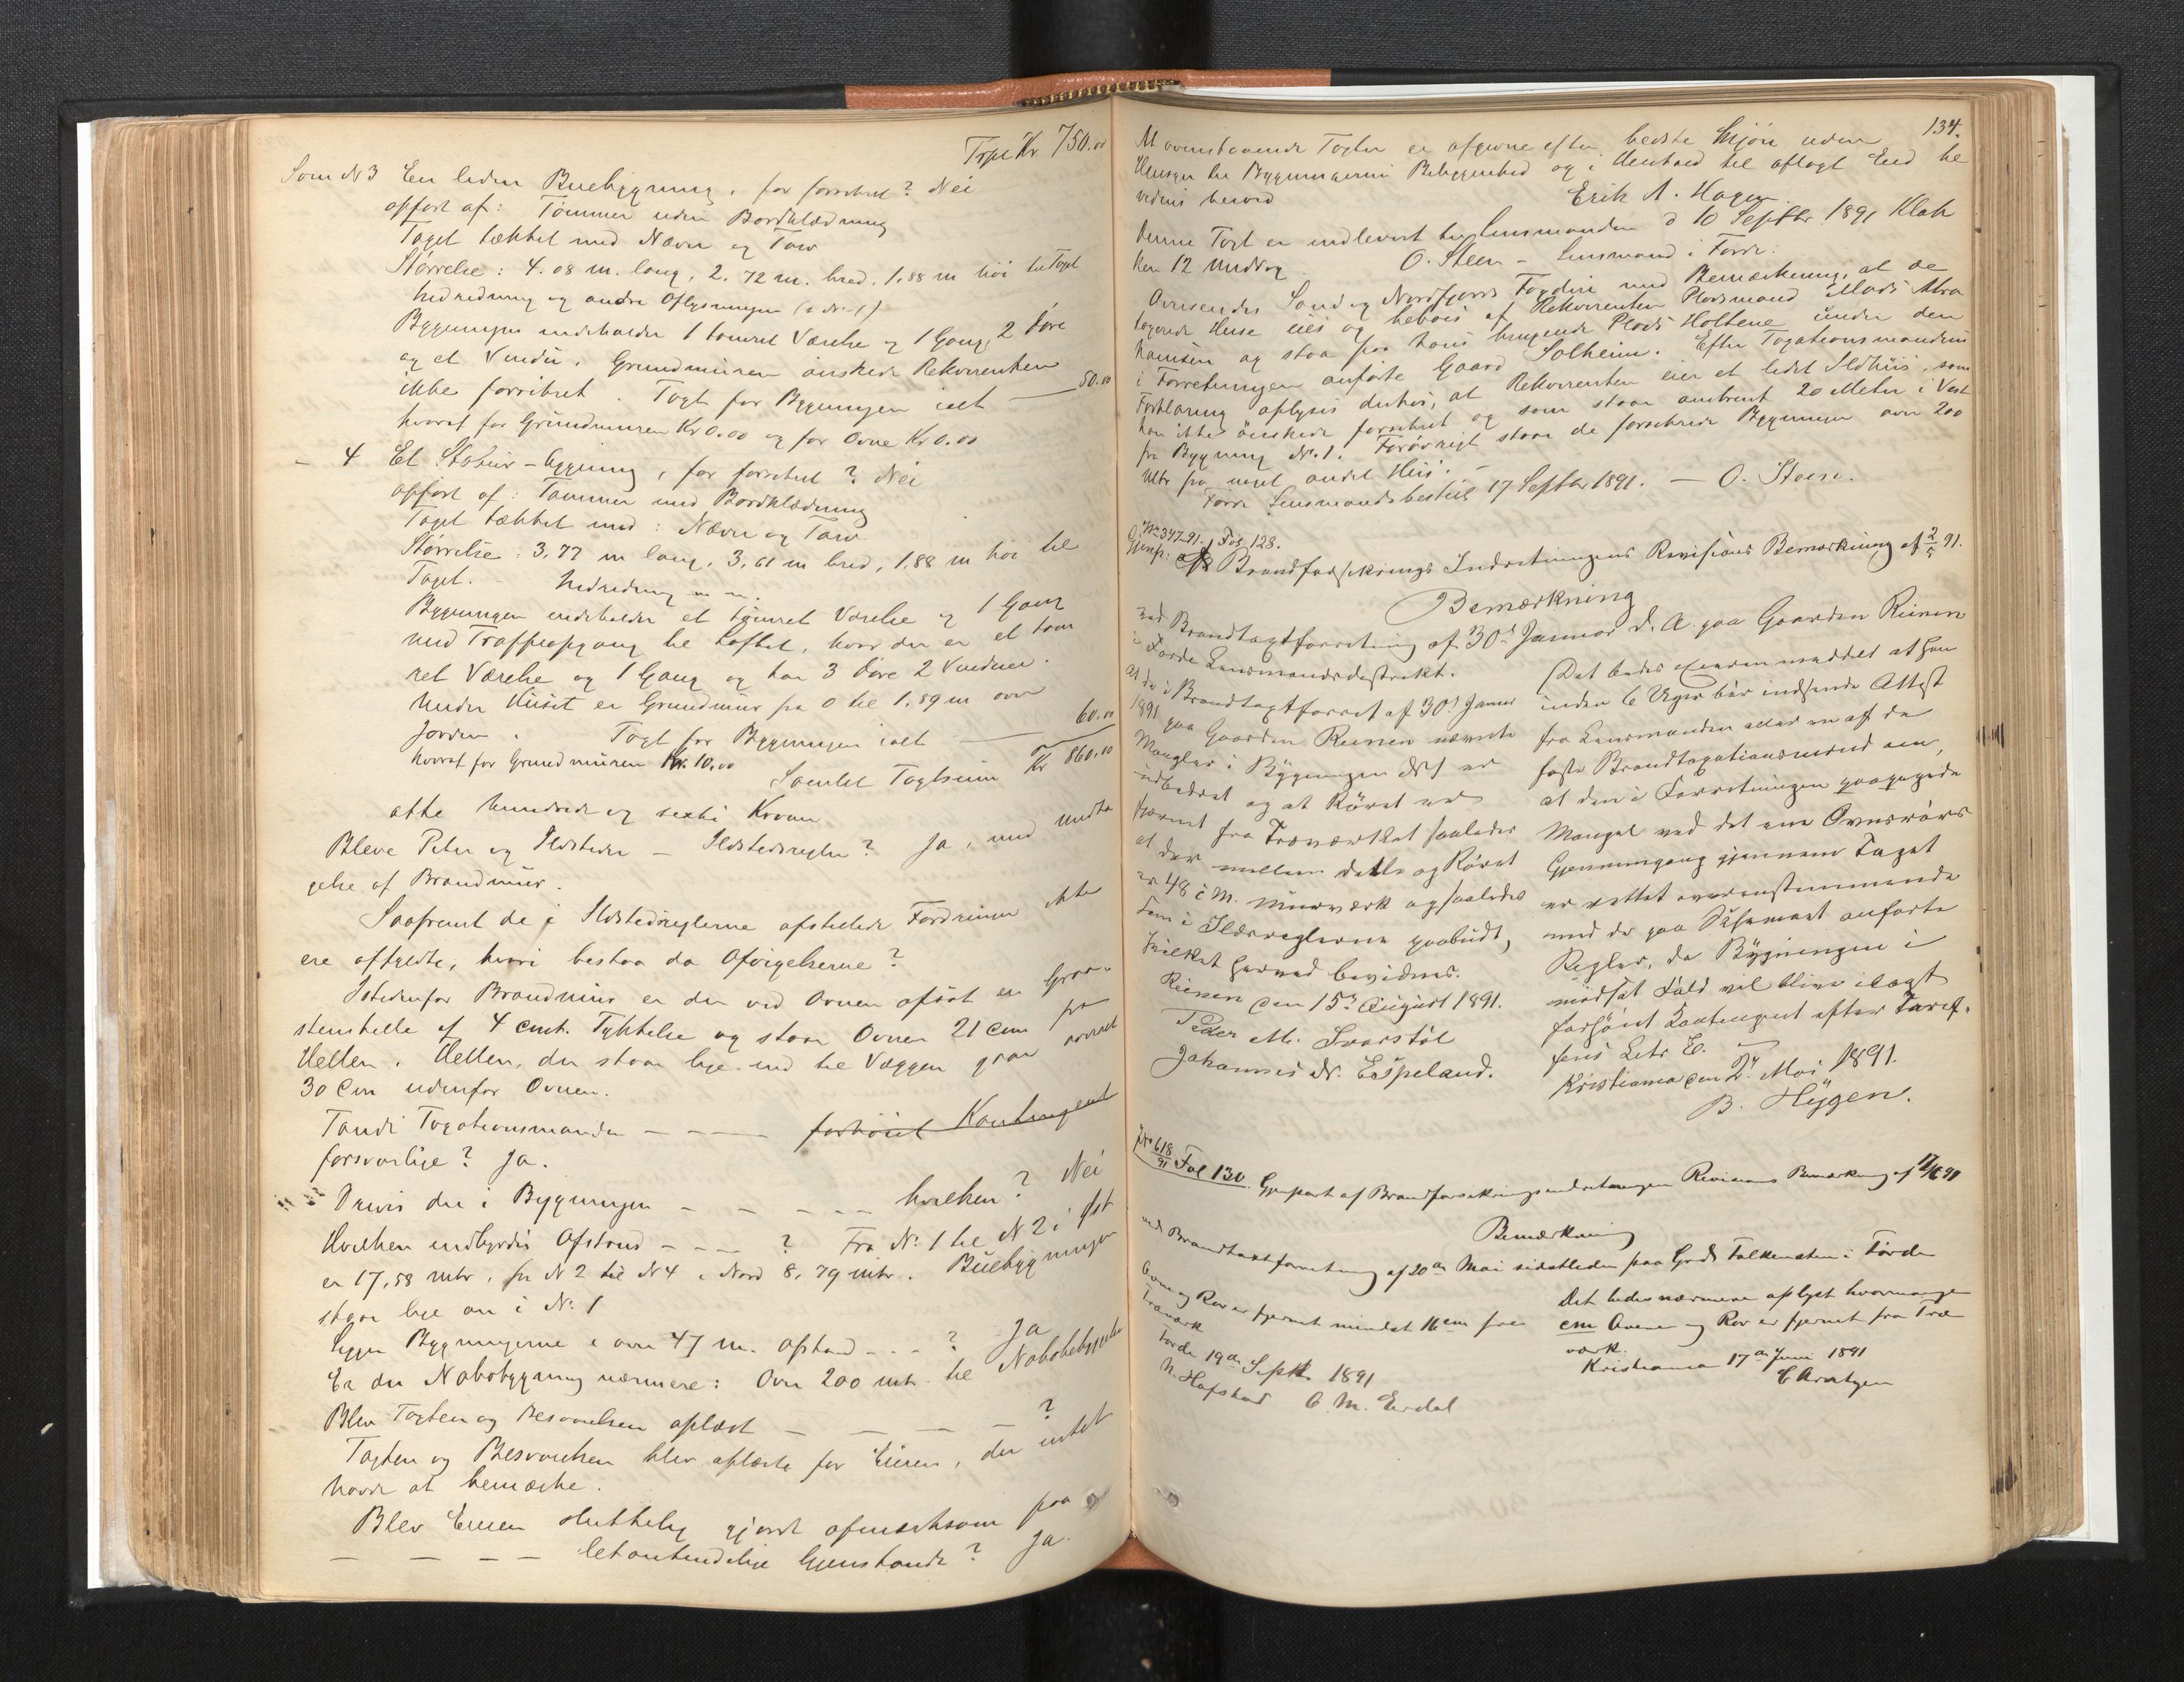 Trpt Kr 750.00
Som N 3 En liden Buebygning, før forsikret? Nei
opført af: Tømmer uden Bordklædning
Taget tækket med Næver og Torv
Størrelse: 4.08 m. lang, 2.72 m. bred, 1.88 m høi til Taget
Indredning og andre Oplysninger
Bygningen indeholder 1 tømret Værelse og 1 Gang, 2 Døre
og et Vindu. Grundmuren ønskede Rekvirenten
ikke forsikret. Taxt for Bygningen ialt — 50.00
hvoraf for Grundmuren Kr 0.00 og for Ovne Kr 0.00
- 4 Et Stabur-bygning, før forsikret? Nei
opført af: Tømmer med Bordklædning
Taget tækket med: Næver og Torv
Størrelse: 3,77 m lang, 3,61 m bred, 1,88 m høi til
Taget. - Indredning m m.
Bygningen indeholder et tømret Værelse og 1 Gang
med Trappeopgang til Loftet, hvor der er et tøm
ret Værelse og 1 Gang og har 3 Døre 2 Vinduer.
Under Huset er Grundmur fra 0 til 1.89 m over
Jorden. Taxt for Bygningen ialt — 60.00
hvoraf for Grundmuren Kr. 10.00
Samlet Taxtsum Kr 860.00
otte hundrede og sexti Kroner
Bleve Piber og Ildsteder — Ildstedsregler? Ja, med undta
gelse af Brandmur.
Saafremt de i Ildstedreglerne opstillede Fordringer ikke
ere opfyldte, hvori bestaa da Afvigelserne?
Istedenfor Brandmur er der ved Ovnen opført en Graa-
stenshelle af 4 cmt. Tykkelse og staar Ovnen 21 cm fra
Hellen. Hellen, der staar lige ind til Væggen gaar
30 Cm udenfor Ovnen.
Fandt Taxationsmanden - - - - forhøiet Kontingent
forsvarlige? Ja.
Drives der i Bygningen - - - - - hvilken? Nei
Hvilken indbyrdes Afstand - - - ? Fra N. 1 til N 2 i Øst
er 17,58 mtr, fra N 2 til N 4 i Nord 8,79 mtr. Buebygningen
staar lige an i N. 1
Ligger Bygningerne i over 47 m. Afstand - - - ? Ja
Er der Nabobygning nærmere: Over 200 mtr. til Nabobebyggelse
Blev Taxten og Beskrivelsen oplæst - - - - ?
Taxten og Beskrivelsen blev oplæste for Eieren, der intet
havde at bemærke.
Blev Eieren skriftlig gjort opmærksom paa
- - - - letantændelige Gjenstande? Ja.
134.
At ovenstaaende Taxter er afgivne efter bedste Skjøn uden
Hensyn til Bygningernes Beliggenhed og i Henhold til aflagt Eed be
vidnes herved
Erik A. Hagen
Denne Taxt er indleveret til Lensmanden d 10 Septbr. 1891 Klok
ken 12 Middag
O. Steen - Lensmand i Førde.
Oversendes Sønd og Nordfjords Fogderi med Bemærkning, at de
taxerede Huse eies og beboes af Rekvirenten Pladsmand Mads
og staa paa hans brugende Plads Holtene under den
i Forretningen anførte Gaard Solheim. Efter Taxationsmandens
Forklaring oplyses derhos, at Rekvirenten eier et lidet Ildhus, som
han ikke ønskede forsikret og som staar omtrent 20 Meter i Vest
fra Bygning N. 1. Forøvrigt staar de forsikrede Bygninger over 200
Mtr fra noget andet Hus. -
Førde Lensmandsbestil 17 Septbr 1891. — O. Steen.
No 347-91. Fol. 128.
Gjenp. af Brandforsikrings Indretningens Revisions Bemærkning af 2/5 91.
Bemærkning
ved Brandtaxtforretning af 30d Januar d. A. paa Gaarden Reinen
i Førde Lensmandsdistrikt.
At de i Brandtaxtforret af 30d Januar
1891 paa Gaarden Reinen nævnte
Mangler i Bygningen N 1 er
udbedret og at Røret er
fjernet fra Træværket saaledes
at der mellem dette og Røret
er 48 c M. Murværk og saaledes
som i Ildsreglerne paabudt,
hvilket herved bevidnes.
Reinen den 15d August 1891.
Peder M. Svarstøl
Johannes N. Espeland.
Det bedes Eieren meddelt at han
inden 6 Uger bør indsende Attest
fra Lensmanden eller en af de
faste Brandtaxationsmænd om,
at den i Forretningen paapegede
Mangel ved det ene Ovnsrørs
Gjennemgang gjennem Taget
er rettet overensstemmende
med de paa Skjemaet anførte
Regler, da Bygningen i
modsat Fald vil blive ilagt
forhøiet Kontingent efter Tarif-
fens Litr E. -
Kristiania den 2d Mai 1891.
B. Hygen.
No 618/91 Fol 130. Gjenpart af Brandforsikringsindretningens Revisions Bemærkning af 17/6 91
Bemærkning
ved Brandtaxtforretning af 20de Mai sidstleden paa Grd Falkensten i Førde
Ovn og Rør er fjernet mindst 16 cm fra
Træværk
Førde 19de Septbr 1891
N. Hafstad O. M. Erdal
Det bedes nærmere oplyst hvormange
cm Ovne og Rør er fjernet fra Træ
værk.
Kristiania 17de Juni 1891